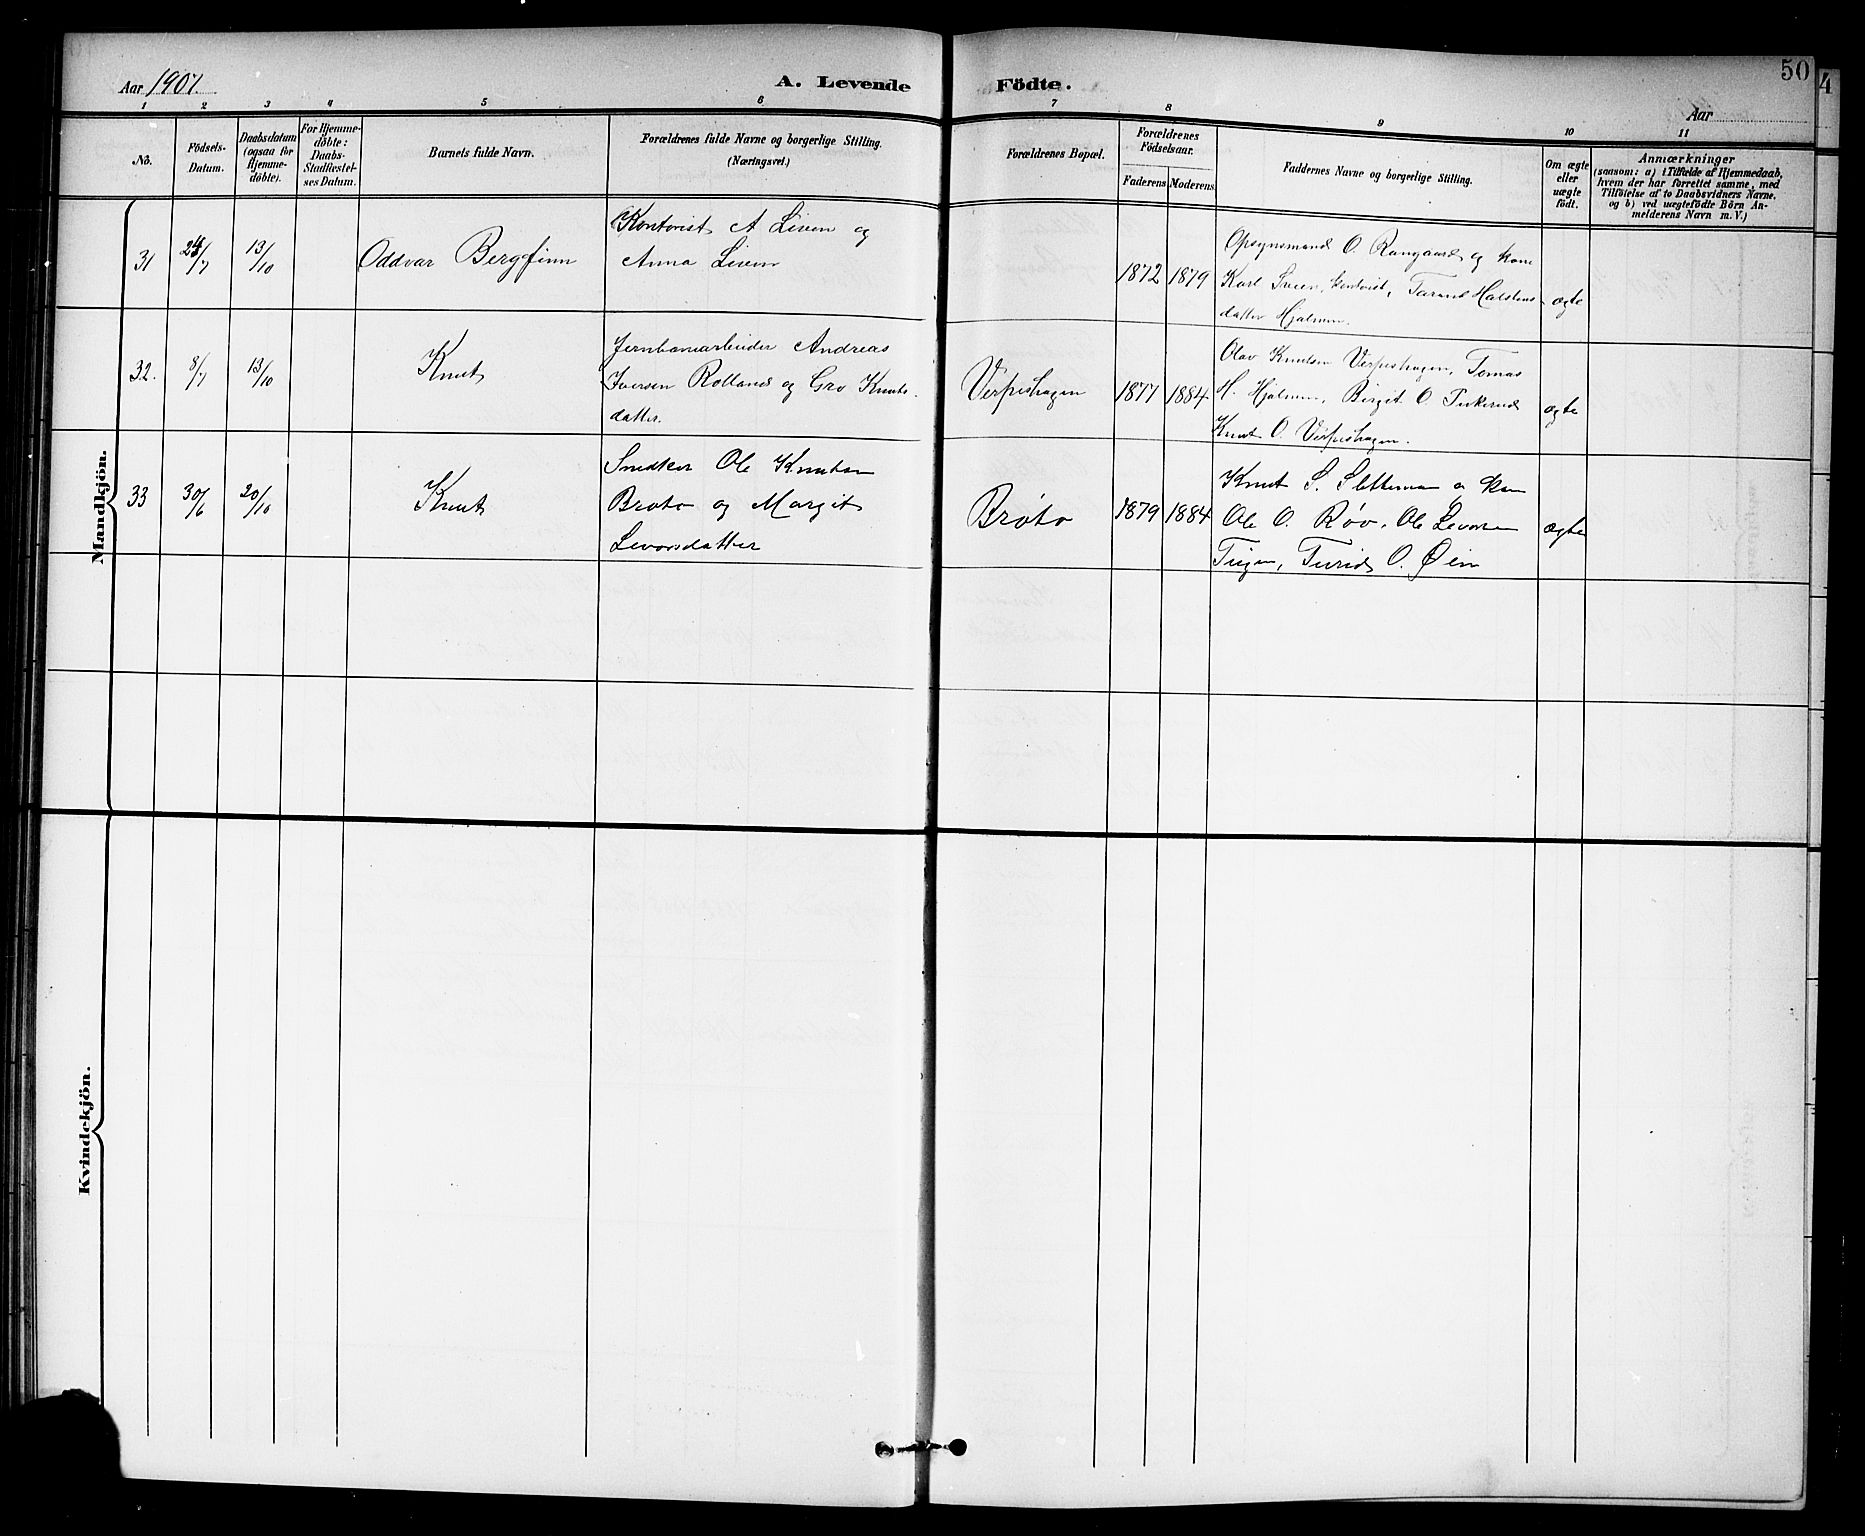 Aar 1907.
A. Levende Födte.
50
4
Aar
1 2 3 4 5 6 7 8 9 10 11
No.
Födsels-Datum.
Daabsdatum (ogsaa för Hjemme-döbte).
For Hjemme-döbte: Daabs-Stadfæstel-ses Datum.
Barnets fulde Navn.
Forældrenes fulde Navne og borgerlige Stilling.
(Næringsvei.)
Forældrenes Bopæl.
Forældrenes Födselsaar.
Faderens
Moderens
Faddernes Navne og borgerlige Stilling.
Om ægte eller uægte födt.
Anmærkninger
(saasom: a) i Tilfælde af Hjemmedaab, hvem der har forrettet samme, med Tilföielse af to Daabsvidners Navne, og b) ved uægtefödte Börn An-melderens Navn m. V.)
Mandkjön.
31 24/7 13/10 Oddvar Bergfinn
Kontorist A Liven og
Anna Liven
1872 1879
Opsynsmand O. Rangaard og kone
Karl Sveen, kontorist, Halstens
datter Hjalmen.
ægte
32. 8/7 13/10 Knut
Jernbanearbeider Andreas
Iversen Rolland og Gro Knuts
datter.
Verpeshagen 1877 1884
Olav Knutsen Verpeshagen, Tomas
H. Hjalmen, Birgit O.
Knut O. Verpeshagen.
ægte
33 30/6 20/10 Knut
Snedker Ole Knutsen
Brøto og Margit
Levorsdatter
Brøto 1879 1884
Knut S. Slettemoen og kone
Ole O. Røv, Ole Levorsen
Turid O. Øien
ægte
Kvindekjön.